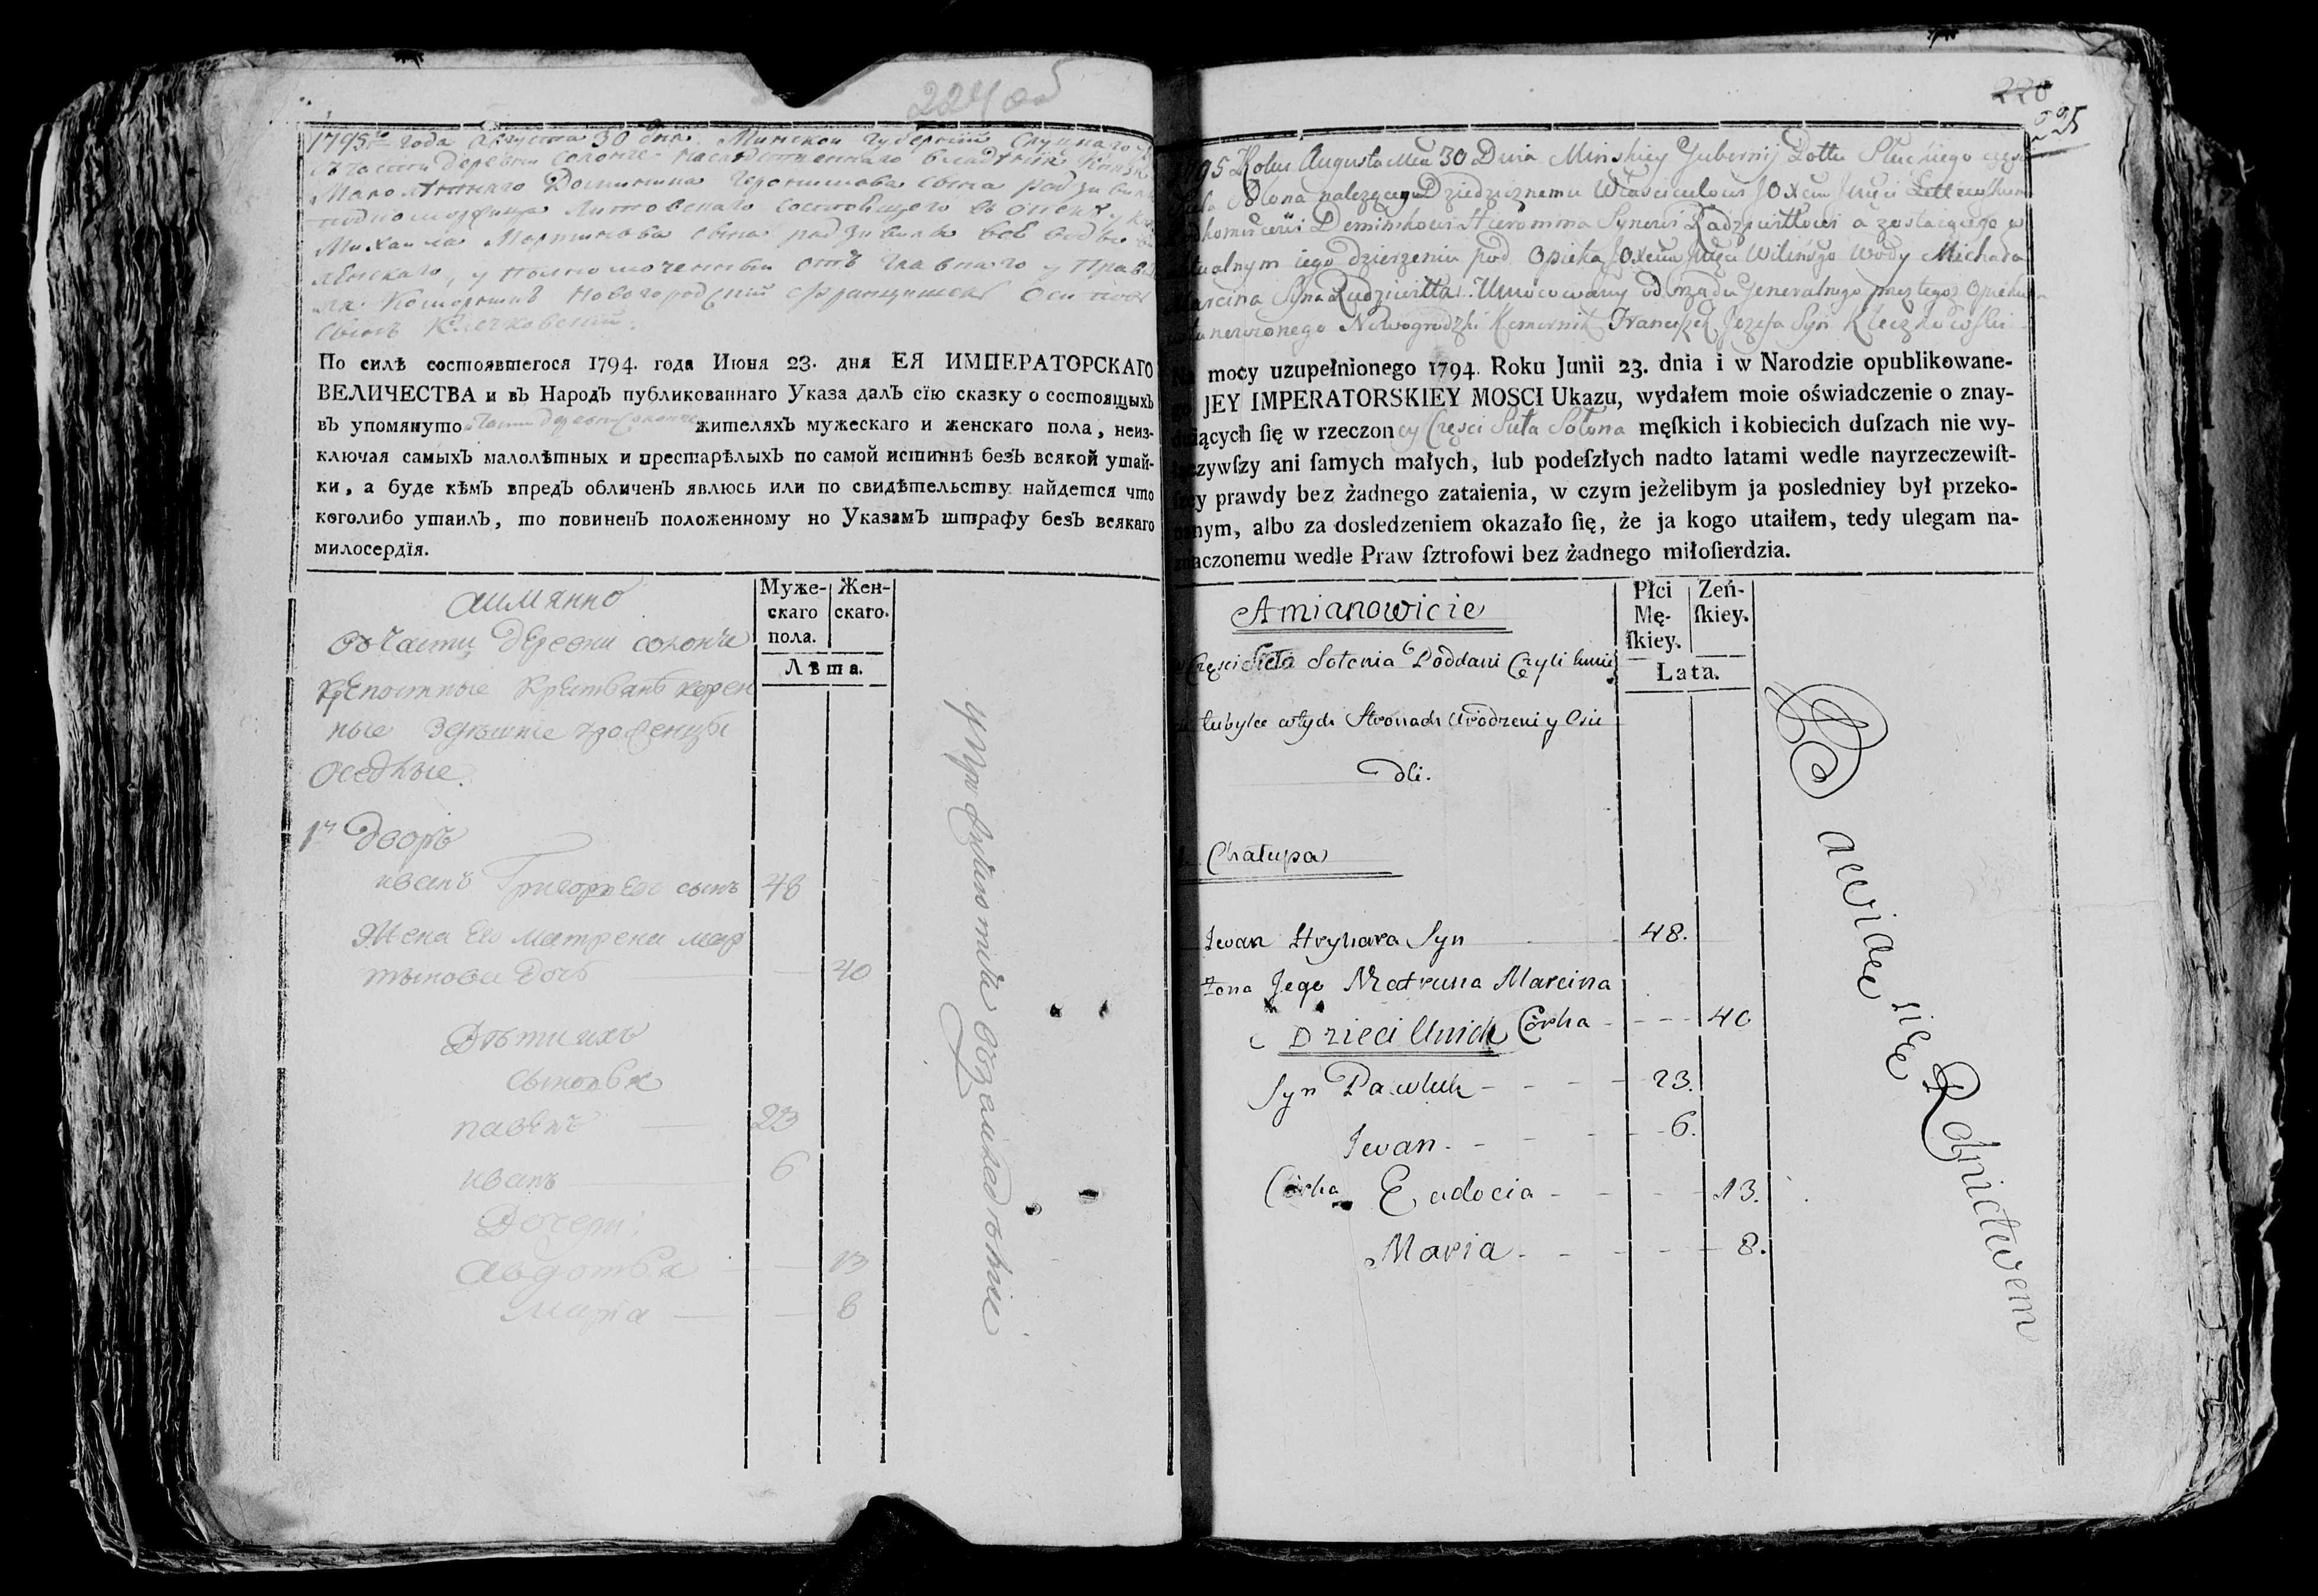 224 об
1795 года Августа 30 дня Минской Губернии Слуцкаго
части деревни Солонче наследственнаго
Малолѣтнаго Доминика Геронимова сына Радзивила
Литовскаго состоящего въ опеки у
Михаила Мартинова сына радзивила
ленскаго, у полномоченный отъ главнаго у
Коморникъ Новогородский Францишекъ Осипов
сынъ Клечковский.
По силѣ состоявшегося 1794. года Июня 23. дня ЕЯ ИМПЕРАТОРСКАГО
ВЕЛИЧЕСТВА и въ Народъ публикованнаго Указа далъ сїю сказку о состоящыхъ
въ упомянуто части деревни солонче жителяхъ мужескаго и женскаго пола, неиз-
ключая самыхъ малолѣтных и престарѣлыхъ по самой истиннѣ безъ всякой утай-
ки, а буде кѣмъ впредъ обличенъ явлюсь или по свидѣтельству найдется что
коголибо утаилъ, то повиненъ положенному по Указамъ штрафу безъ всякаго
милосердїя.
Муже-
скаго
пола.
Жен-
скаго.
Лѣта.
аимянно
въ Части деревни солонче
крепостные
ные здешние
оседлые.
1й дворъ
иванъ Григорьевъ сынъ 48
Жена Ево матрена мар
тынова дочь 40
Дѣти ихъ
сыновья
павелъ 23
иванъ 6
Дочери
авдотья 13
марья 8
228
225
1795 Roku Augusta 30 Dnia Minskiey Gubernij Pottu Słuckiego części
Sioła Sołona należącego Dziedzicznemu Właścicielowi JOXciu Jmci Littewskiemu
Dominikowi Hieronima Synowi Radziwiłłowi a zostaiącego w
aktualnym iego dzierżeniu pod Opieką JOXcia Jmci Wileńsgo Wdy Michała
Marcina Syna Radziwiłła. Umocowany od rządu Jeneralnego przez tegoż Opiekuna
Nowogrodzki Komornik Franciszek Jozefa Syn Kleczkowski
Na mocy uzupełnionego 1794. Roku Junii 23. dnia i w Narodzie opublikowane-
go JEY IMPERATORSKIEY MOSCI Ukazu, wydałem moie oświadczenie o znay-
duiących ſię w rzeczoney Części Sieła Sołona męſkich i kobiecich duſzach nie wy-
łączywſzy ani ſamych małych, lub podeſzłych nadto latami wedle nayrzeczewiſt-
ſzey prawdy bez żadnego zataienia, w czym jeżelibym ja posledniey był przeko-
nanym, albo za dosledzeniem okazało ſię, że ja kogo utaiłem, tedy ulegam na-
znaczonemu wedle Praw ſztrofowi bez żadnego miłoſierdzia.
Płci
Mę-
ſkiey.
Zeń-
ſkiey.
Lata.
Amianowicie
w Części Sieła Sołonia Poddani Czyli
tubylce w tych Stronach Urodzeni y Osie
dli.
1. Chałupa
Iwan Hryhara Syn 48.
Żona Jego Matruna Marcina
Córka 40
Dzieci Unich
Syn Pawluk 23.
Iwan 6.
Córka Eudocia 13.
Maria 8.
Bawiące się Rolnictwem